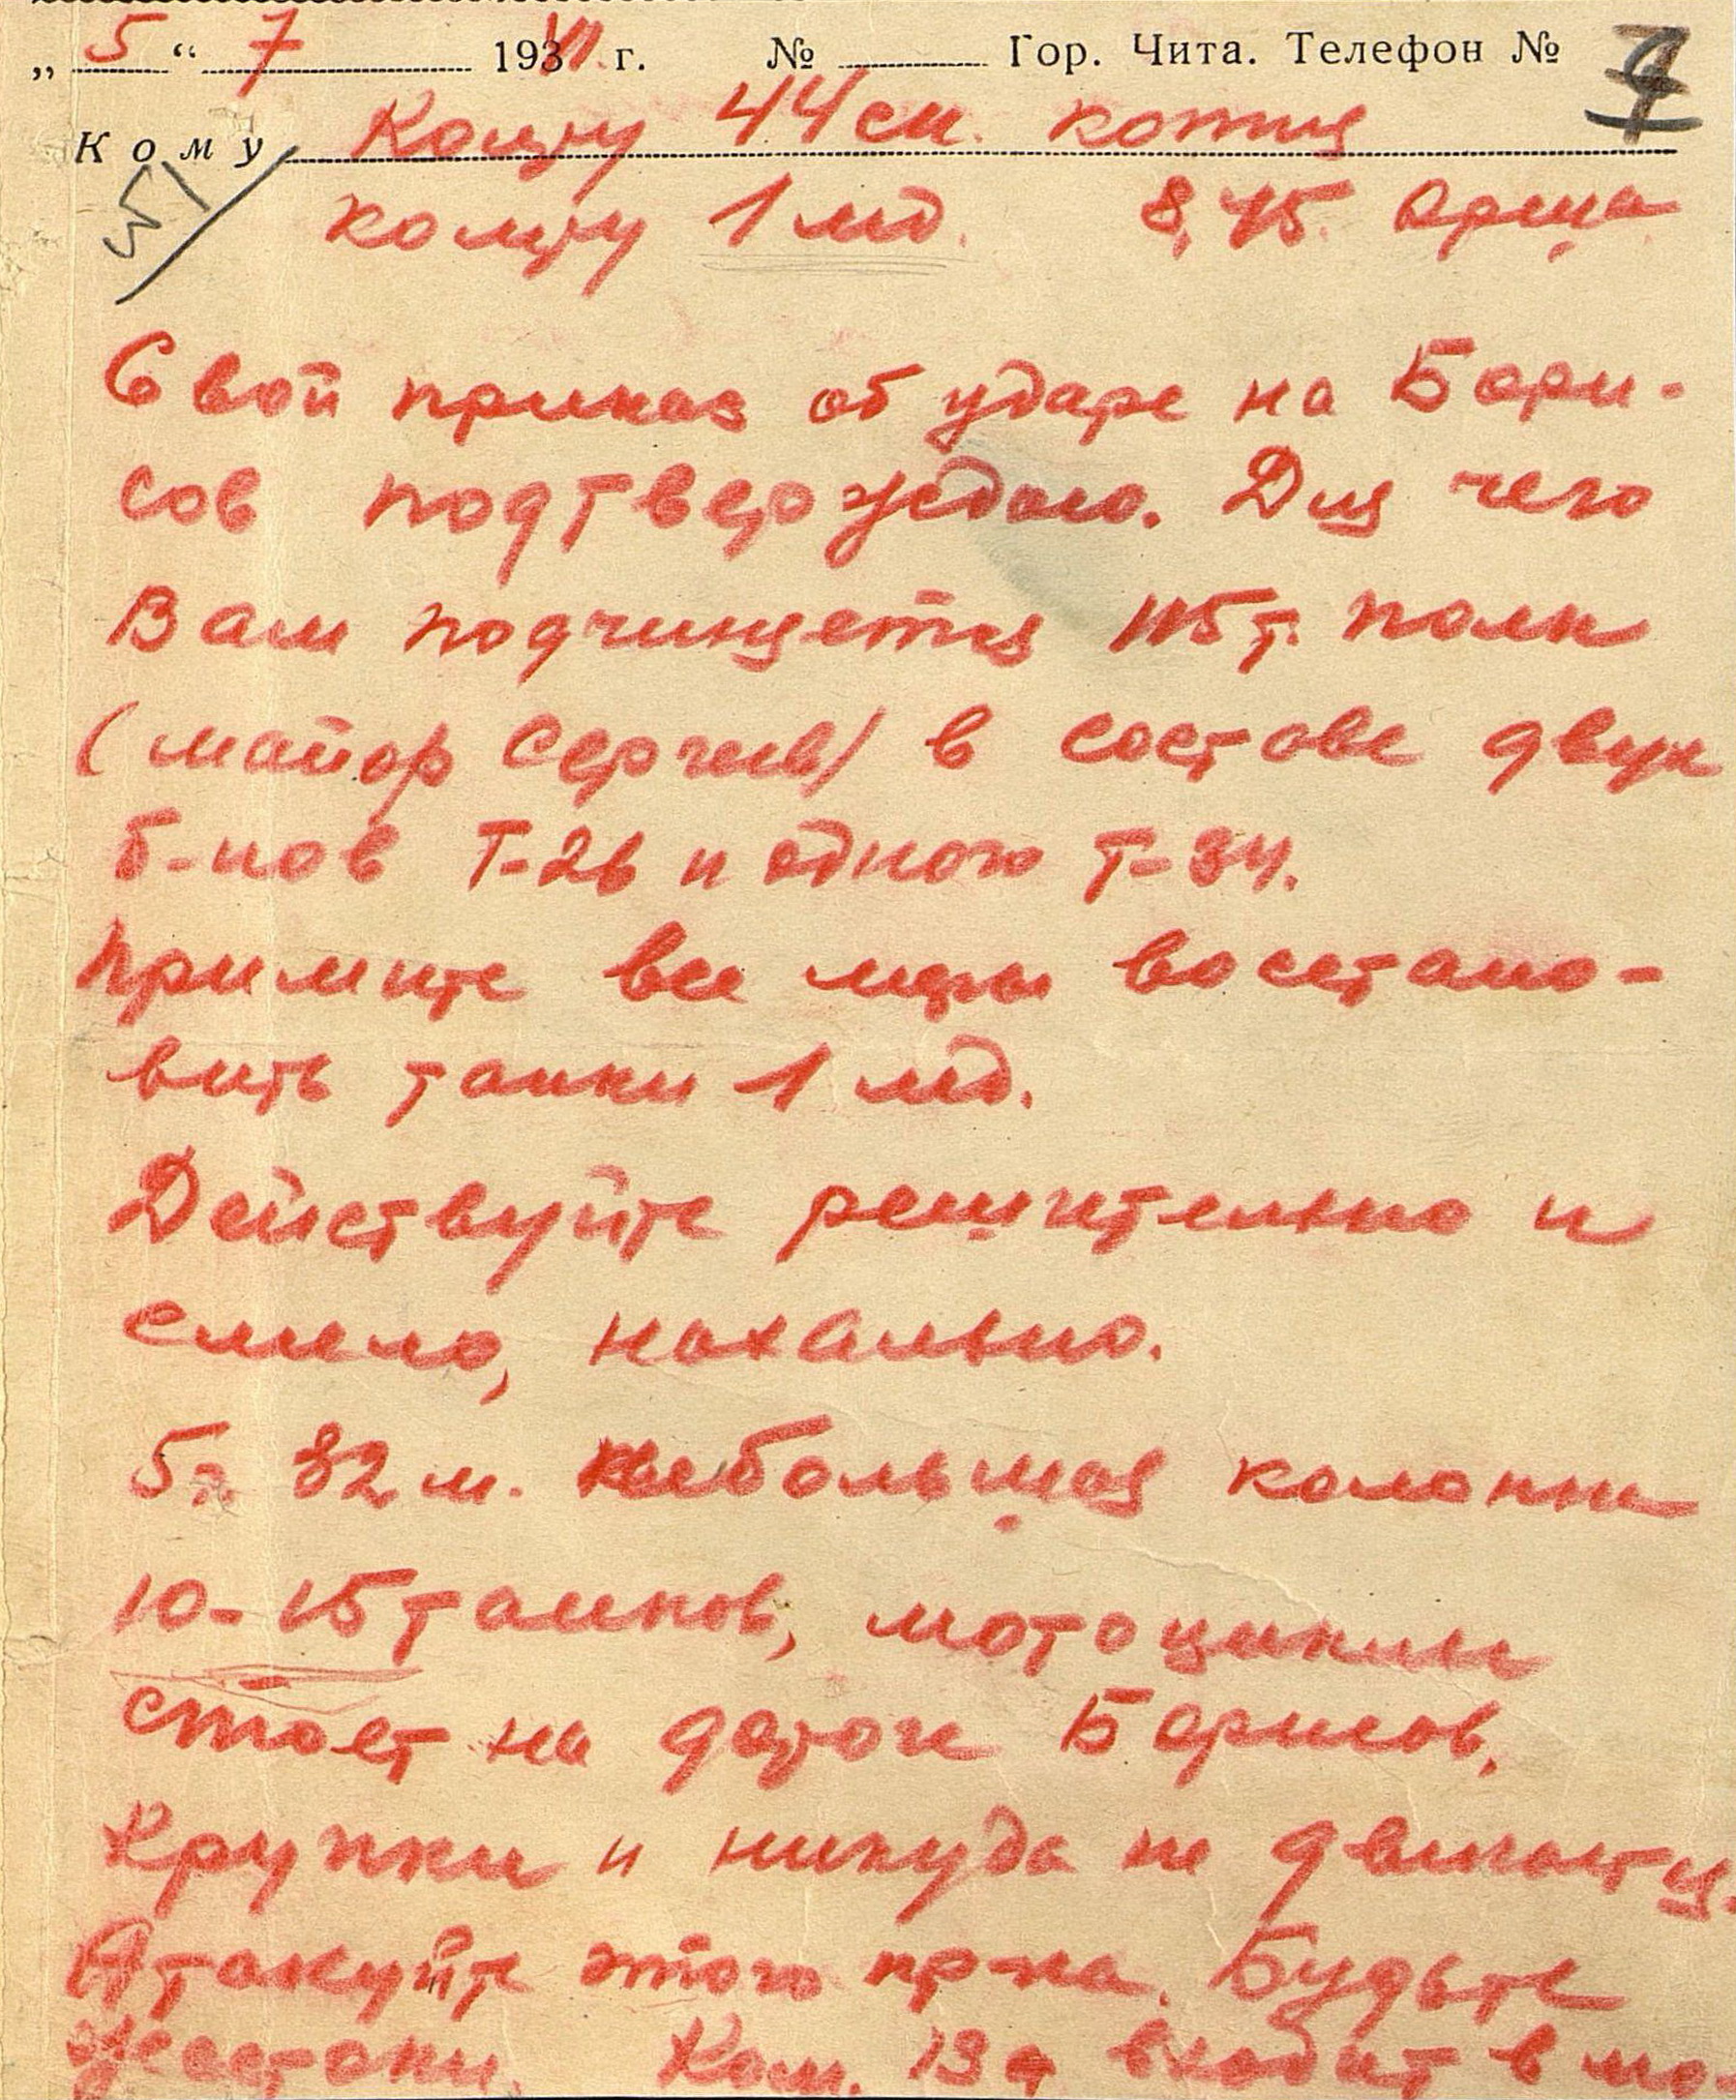 „ 5 “ 7 1941 г. № Гор. Чита. Телефон №
Кому Комду 44 ск. копия
комду 1 мд. 8,45. Орша
Свой приказ об ударе на Бори-
сов подтверждаю. Для чего
Вам подчиняется 115 т. полк
(майор Сергеев) в составе двух
б-нов Т-26 и одного Т-34.
Примите все меры восстано-
вить танки 1 мд.
Действуйте решительно и
смело, нахально.
5 ч. 32 м. небольшая колонна
10-15 танков, мотоциклы
стоят на дороге Борисов,
Крупки и никуда не двигаются.
Атакуйте этого пр-ка. Будьте
жестоки. Ком. 13 а входит в мо